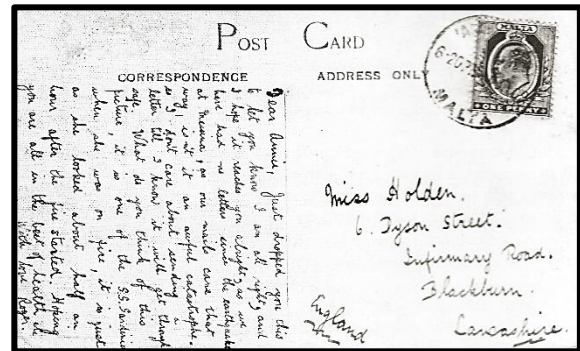 POST CARD
CORRESPONDENCE
ADDRESS ONLY
Dear Annie, Just dropped you this
to let you know I am all righty and
I hope it reaches you alrighty, as we
have had no letters since the earthquake
at Messina, as our mails came that
way, is it it an awful catastrophe.
so I don't care about sending a
letter till I know it will get through
safe. What do you think of this
picture, it is one of the S.S. Sardinia
when she was on fire, it is just
as she looked about half an
hour after the fire started. Hoping
you are all in the best of health, I
With love Roger.
MALTA
ONE PENNY
MALTA
Miss Holden.
6. Tyson Street.
Infirmary Road.
Blackburn.
Lancashire.
England